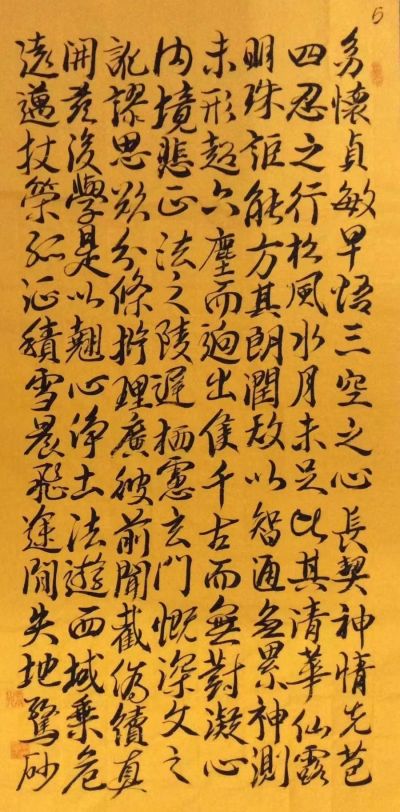 幼懷貞敏早悟三空之心長契神情先苞
四忍之行松風水月未足比其清華仙露
明珠詎能方其朗潤故以智通無累神測
未形超六塵而迥出隻千古而無對凝心
內境悲正法之陵遲栖慮玄門慨深文之
訛謬思欲分條析理廣彼前聞截偽續真
開茲後學是以翹心淨土法遊西域乘危
遠邁杖策孤征積雪晨飛途間失地驚砂